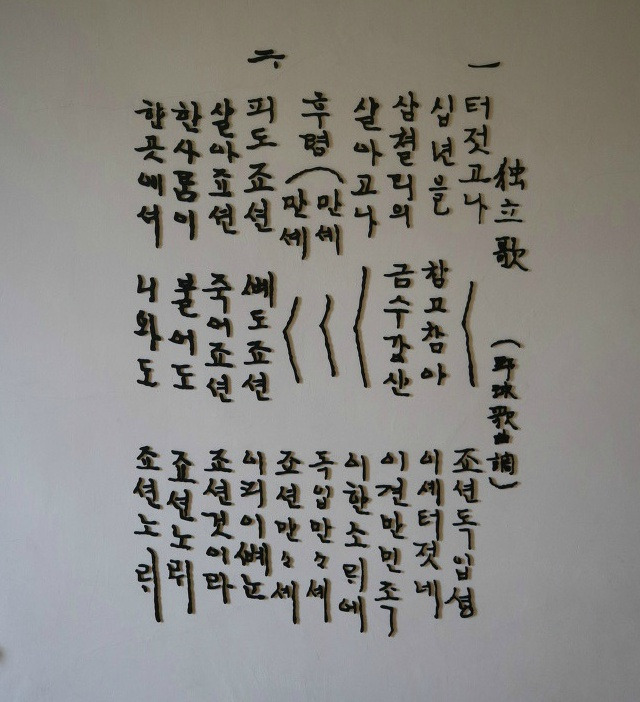 独立歌 (野球歌曲調)
一
터젓고나 〱 죠션독입셩
십년을 참고참아 이세터젓네
삼쳘리의 금수강산 이쳔만민족
살아고나 〱 이한소릐에
후렴 (만세 〱 독입만々세
만세 〱 죠션만々세
二
피도죠션 뼤도죠션 이피이뼤는
살아죠션 죽어죠션 죠션것이라
한사름이 불어도 죠션노릐
한곳에셔 니와도 죠션노릐